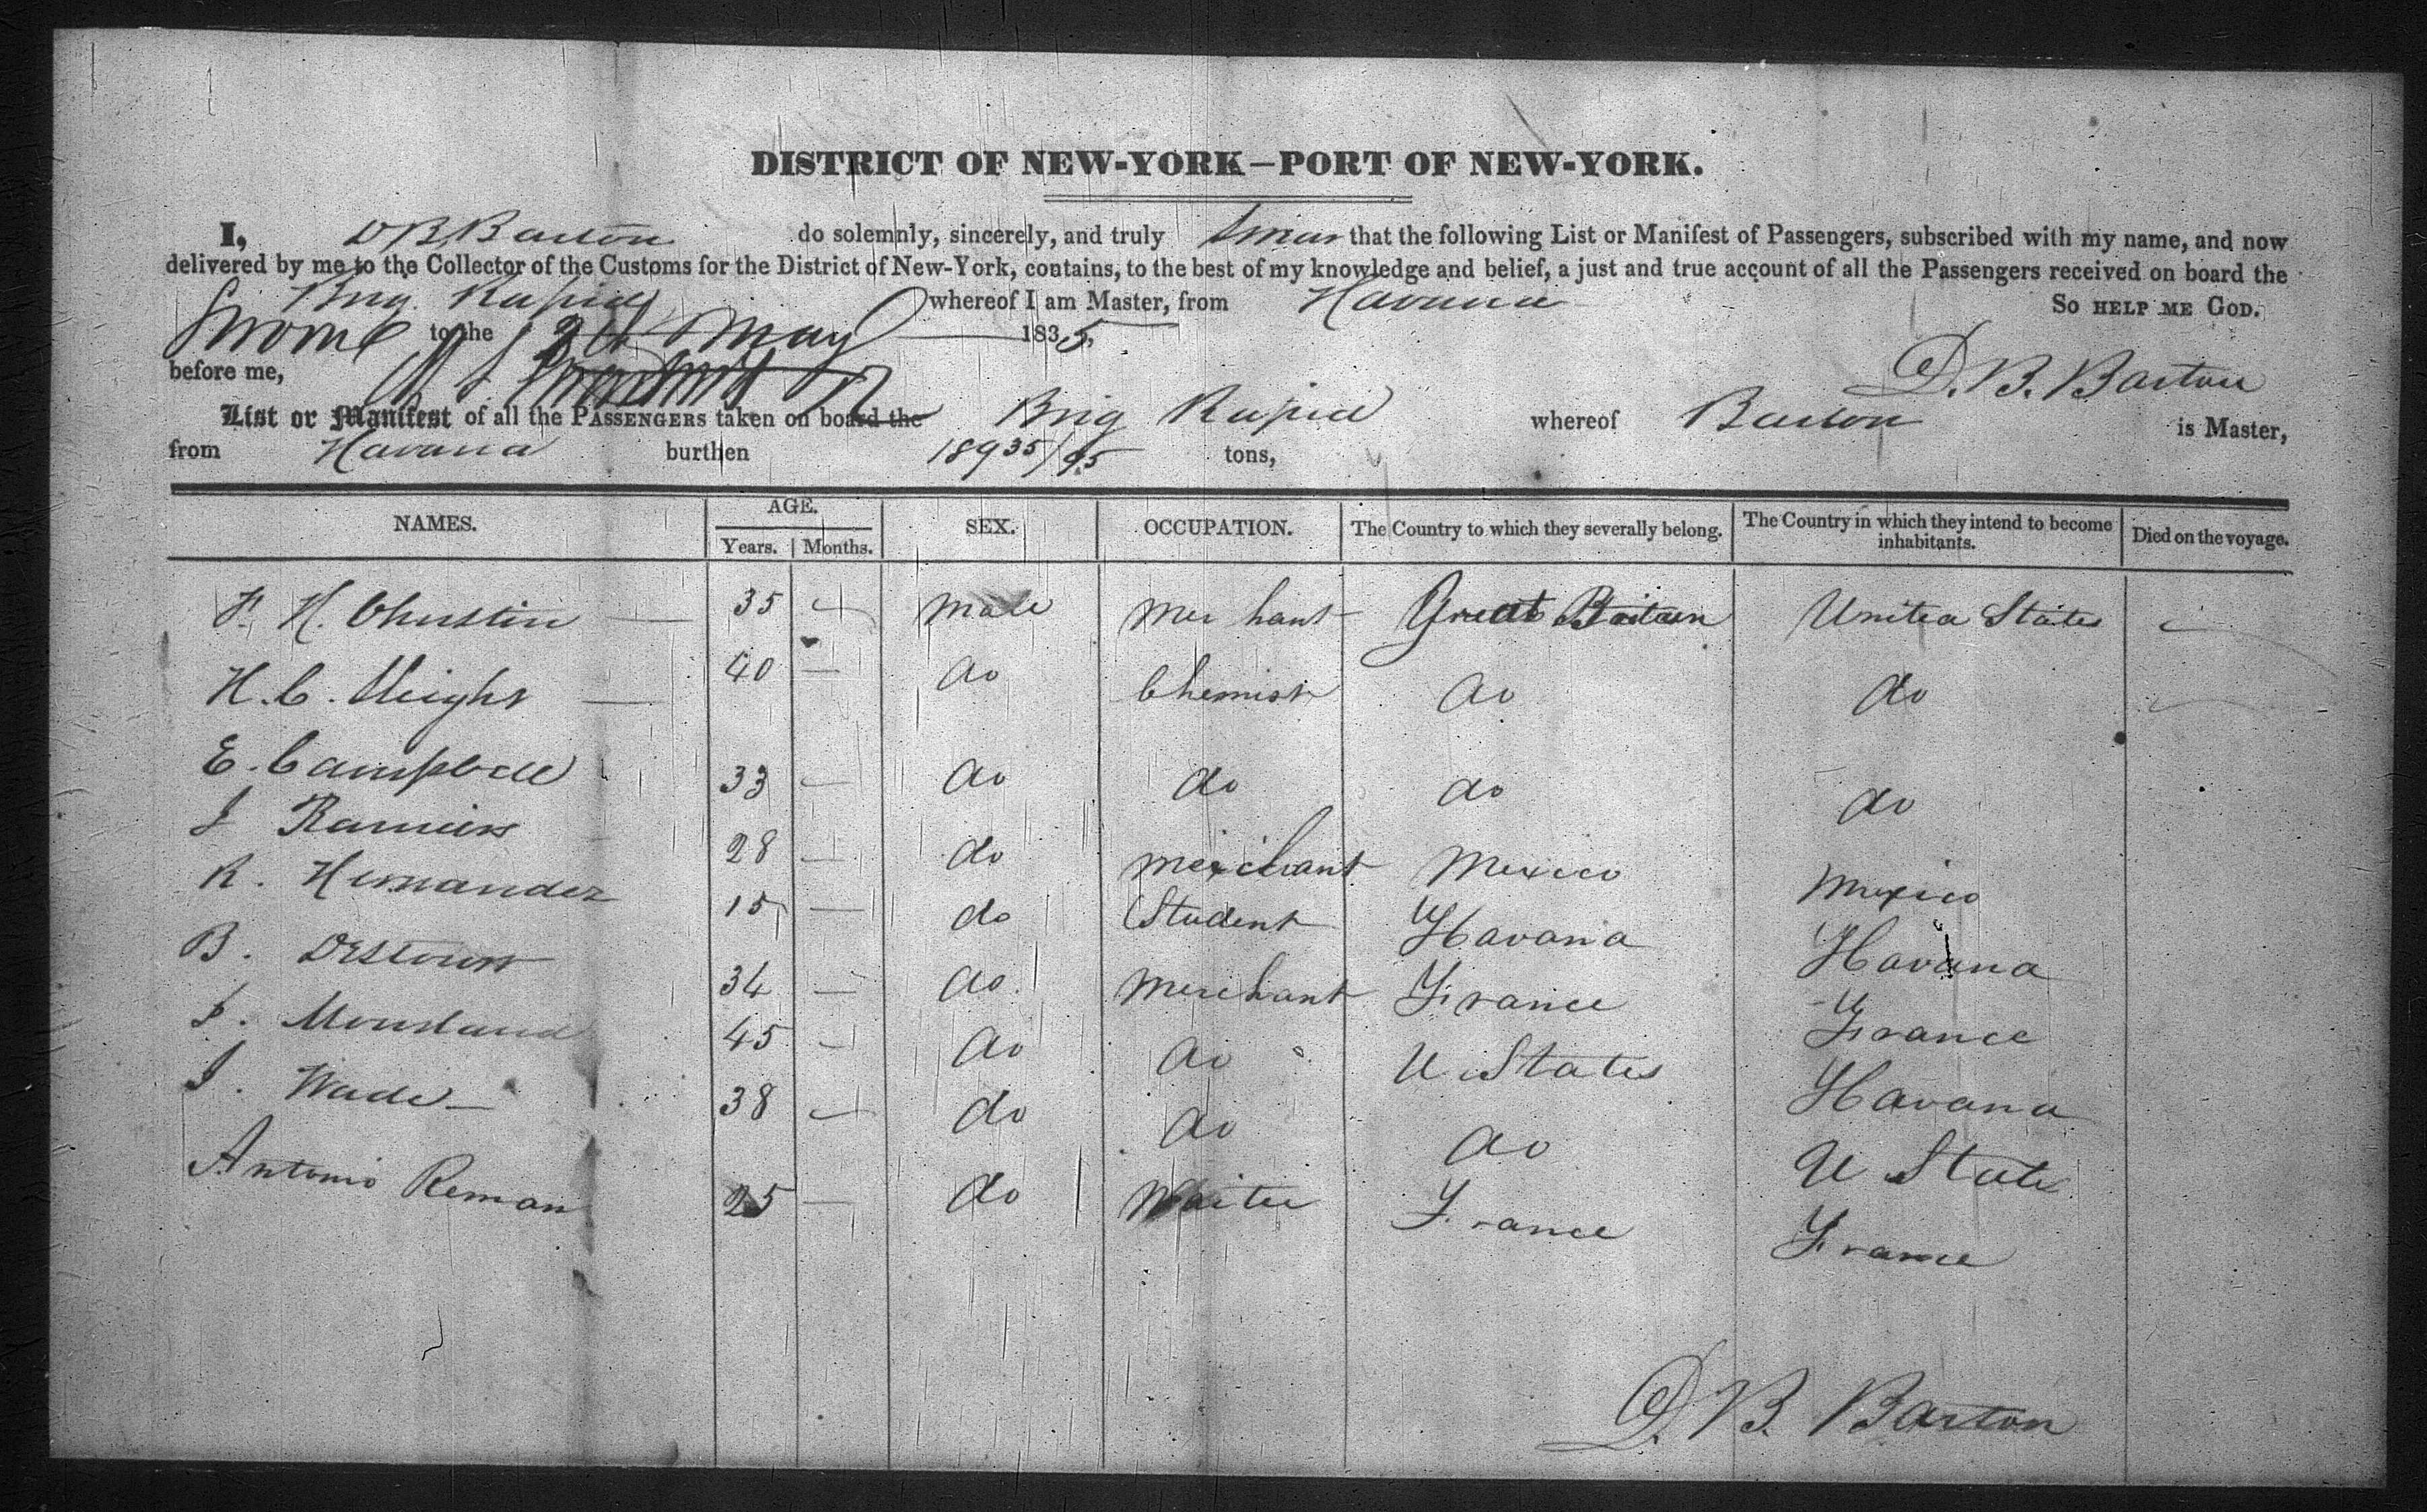 DISTRICT OF NEW-YORK—PORT OF NEW-YORK.
I, D B Barton do solemnly, sincerely, and truly swear that the following List or Manifest of Passengers, subscribed with my name, and now
delivered by me to the Collector of the Customs for the District of New-York, contains, to the best of my knowledge and belief, a just and true account of all the Passengers received on board the
Brig Rapid whereof I am Master, from Havana So HELP ME GOD.
Sworn to the May 1835,
before me, D. B. Barton
List or Manifest of all the PASSENGERS taken on board the Brig Rapid whereof Barton is Master,
from Havana burthen 189 35/95 tons,
NAMES. AGE. Years. Months. SEX. OCCUPATION. The Country to which they severally belong. The Country in which they intend to become inhabitants. Died on the voyage.
F. H. 35 — male merchant Great Britain United States
H. C. 40 — do Chemist do do
E. Campbell 33 — do do do do
J 28 — do merchant Mexico Mexico
R. Hernandez 15 — do Student Havana Havana
B. 34 — do. merchant France France
45 — do do U States Havana
J. Wade — 38 — do do do U State
Antonio Reman 25 — do Waiter France France
D. B. Barton